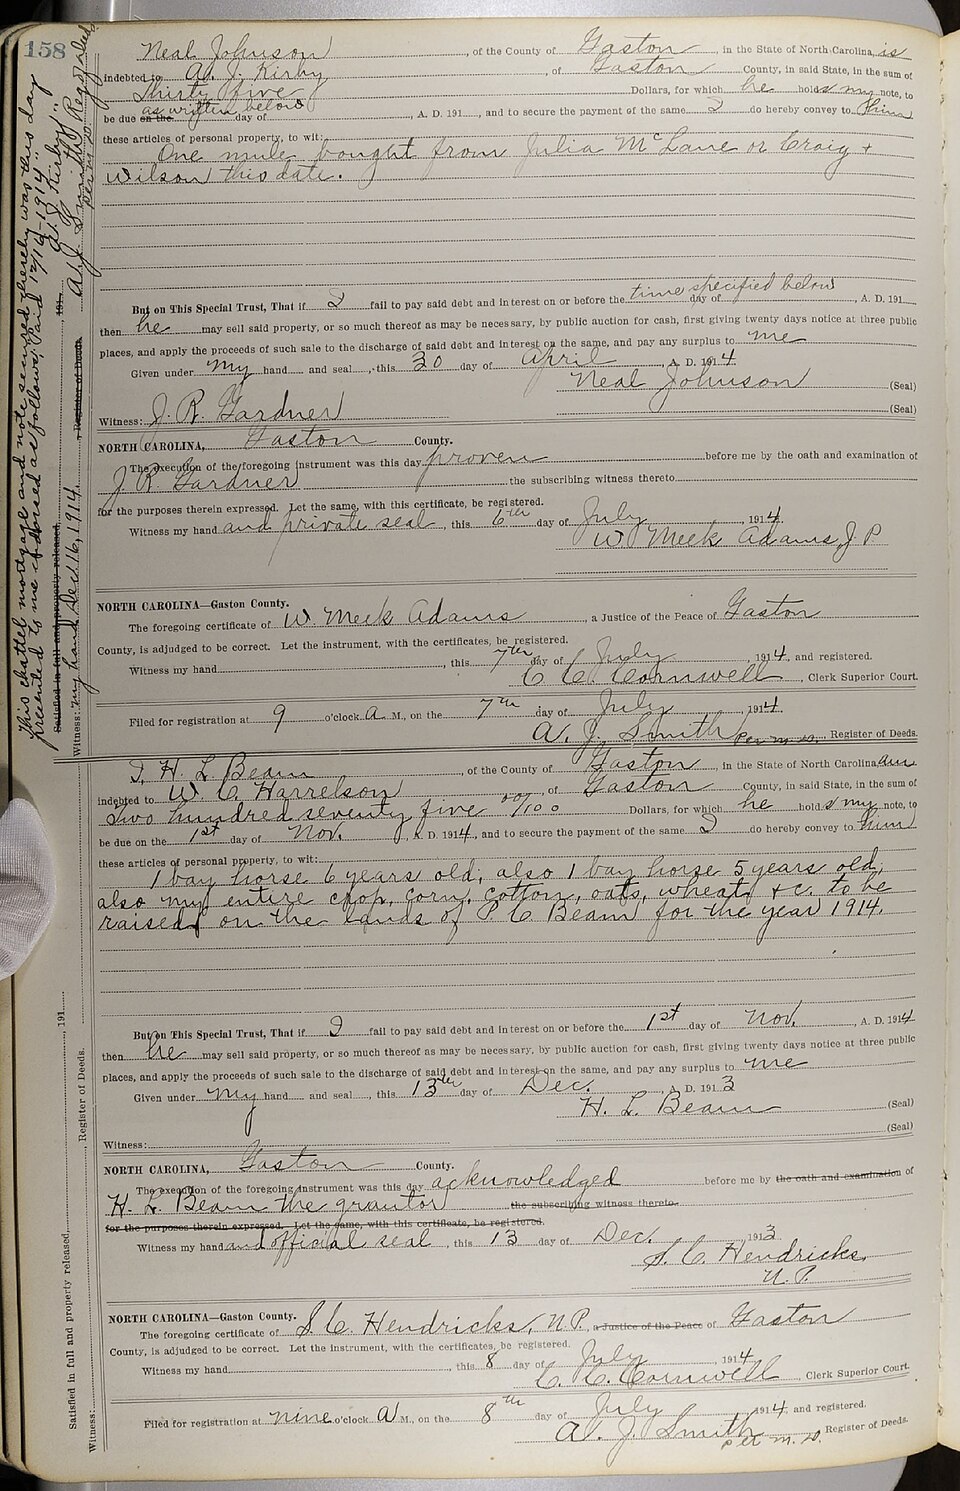 158
Neal Johnson, of the County of Gaston, in the State of North Carolina, is
indebted to A. J. Kirby, of Gaston County, in said State, in the sum of
Thirty five Dollars, for which he holds my note, to
be due on the as written below day of, A. D. 191, and to secure the payment of the same I do hereby convey to him
these articles of personal property, to wit:
One mule bought from Julia McLane or Craig +
Wilson this date.
But on This Special Trust, That if I fail to pay said debt and interest on or before the time specified below day of, A. D. 191
then he may sell said property, or so much thereof as may be necessary, by public auction for cash, first giving twenty days notice at three public
places, and apply the proceeds of such sale to the discharge of said debt and interest on the same, and pay any surplus to me
Given under my hand and seal, this 30 day of April A. D. 1914
Neal Johnson (Seal)
(Seal)
Witness: J. R. Gardner
NORTH CAROLINA, Gaston County.
The execution of the foregoing instrument was this day proven before me by the oath and examination of
J R Gardner the subscribing witness thereto
for the purposes therein expressed. Let the same, with this certificate, be registered.
Witness my hand and private seal, this 6th day of July, 1914
W. Meek Adams, J. P.
NORTH CAROLINA—Gaston County.
The foregoing certificate of W. Meek Adams, a Justice of the Peace of Gaston
County, is adjudged to be correct. Let the instrument, with the certificates, be registered.
Witness my hand, this 7th day of July 1914, and registered.
C. C. Cornwell, Clerk Superior Court.
Filed for registration at 9 o'clock A M., on the 7th day of July, 1914
A. J. Smith Per M. D., Register of Deeds.
This chattel mortgage and note secured thereby was this day
presented to me endorsed as follows, "Paid 12/14-1914
A. J. Kirby"
Satisfied in full and property released, 191
Witness: my hand Dec. 16, 1914. A. J. Smith Reg of Deeds
, Register of Deeds
per M. D.
I, H. L. Beam, of the County of Gaston, in the State of North Carolina, am
indebted to W. C. Harrelson, of Gaston County, in said State, in the sum of
Two hundred seventy five 00/100 Dollars, for which he holds my note, to
be due on the 1st day of Nov., A. D. 1914, and to secure the payment of the same I do hereby convey to him
these articles of personal property, to wit:
1 bay horse 6 years old; also 1 bay horse 5 years old,
also my entire crop, corn, cotton, oats, wheat, &c. to be
raised on the lands of P. C. Beam for the year 1914.
But on This Special Trust, That if I fail to pay said debt and interest on or before the 1st day of Nov., A. D. 1914
then he may sell said property, or so much thereof as may be necessary, by public auction for cash, first giving twenty days notice at three public
places, and apply the proceeds of such sale to the discharge of said debt and interest on the same, and pay any surplus to me
Given under my hand and seal, this 13th day of Dec. A. D. 1913
H. L. Beam (Seal)
(Seal)
Witness:
NORTH CAROLINA, Gaston County.
The execution of the foregoing instrument was this day acknowledged before me by the oath and examination of
H. L. Beam the grantor the subscribing witness thereto
for the purposes therein expressed. Let the same, with this certificate, be registered.
Witness my hand and official seal, this 13 day of Dec. 1913
S. C. Hendricks,
N. P.
NORTH CAROLINA—Gaston County.
The foregoing certificate of S. C. Hendricks, N. P., a Justice of the Peace of Gaston
County, is adjudged to be correct. Let the instrument, with the certificates, be registered.
Witness my hand, this 8 day of July, 1914
C. C. Cornwell, Clerk Superior Court.
Filed for registration at nine o'clock A M., on the 8th day of July 1914 and registered.
A. J. Smith per M. D. Register of Deeds.
Satisfied in full and property released, 191
Witness: , Register of Deeds.